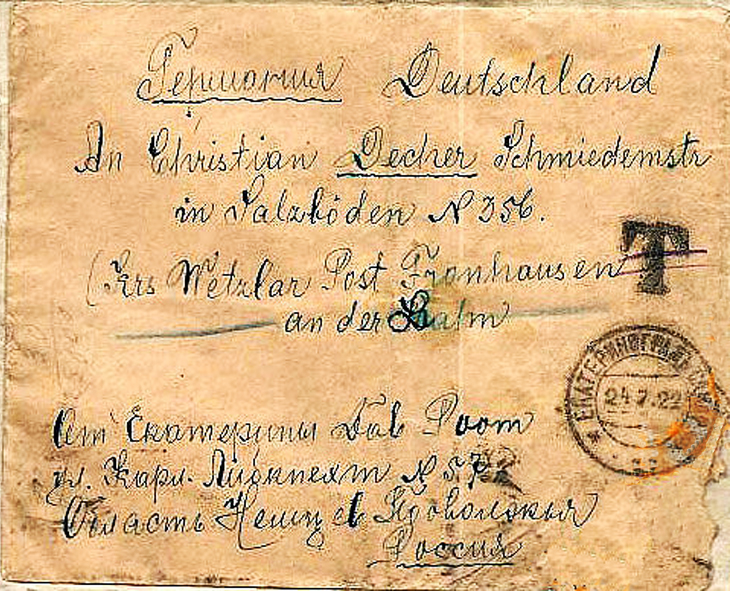 Германия Deutschland
An Christian Decher Schmiedemstr
in Salzböden N 356.
(Krs Wetzlar Post Fronhausen
an der Lahn
T
ЕКАТЕРИНОГРАД
24.7.22
От Екатерины Гав Роот
ул. Карл. Либкнехт N 57
Область Немцев Поволжья
Россия